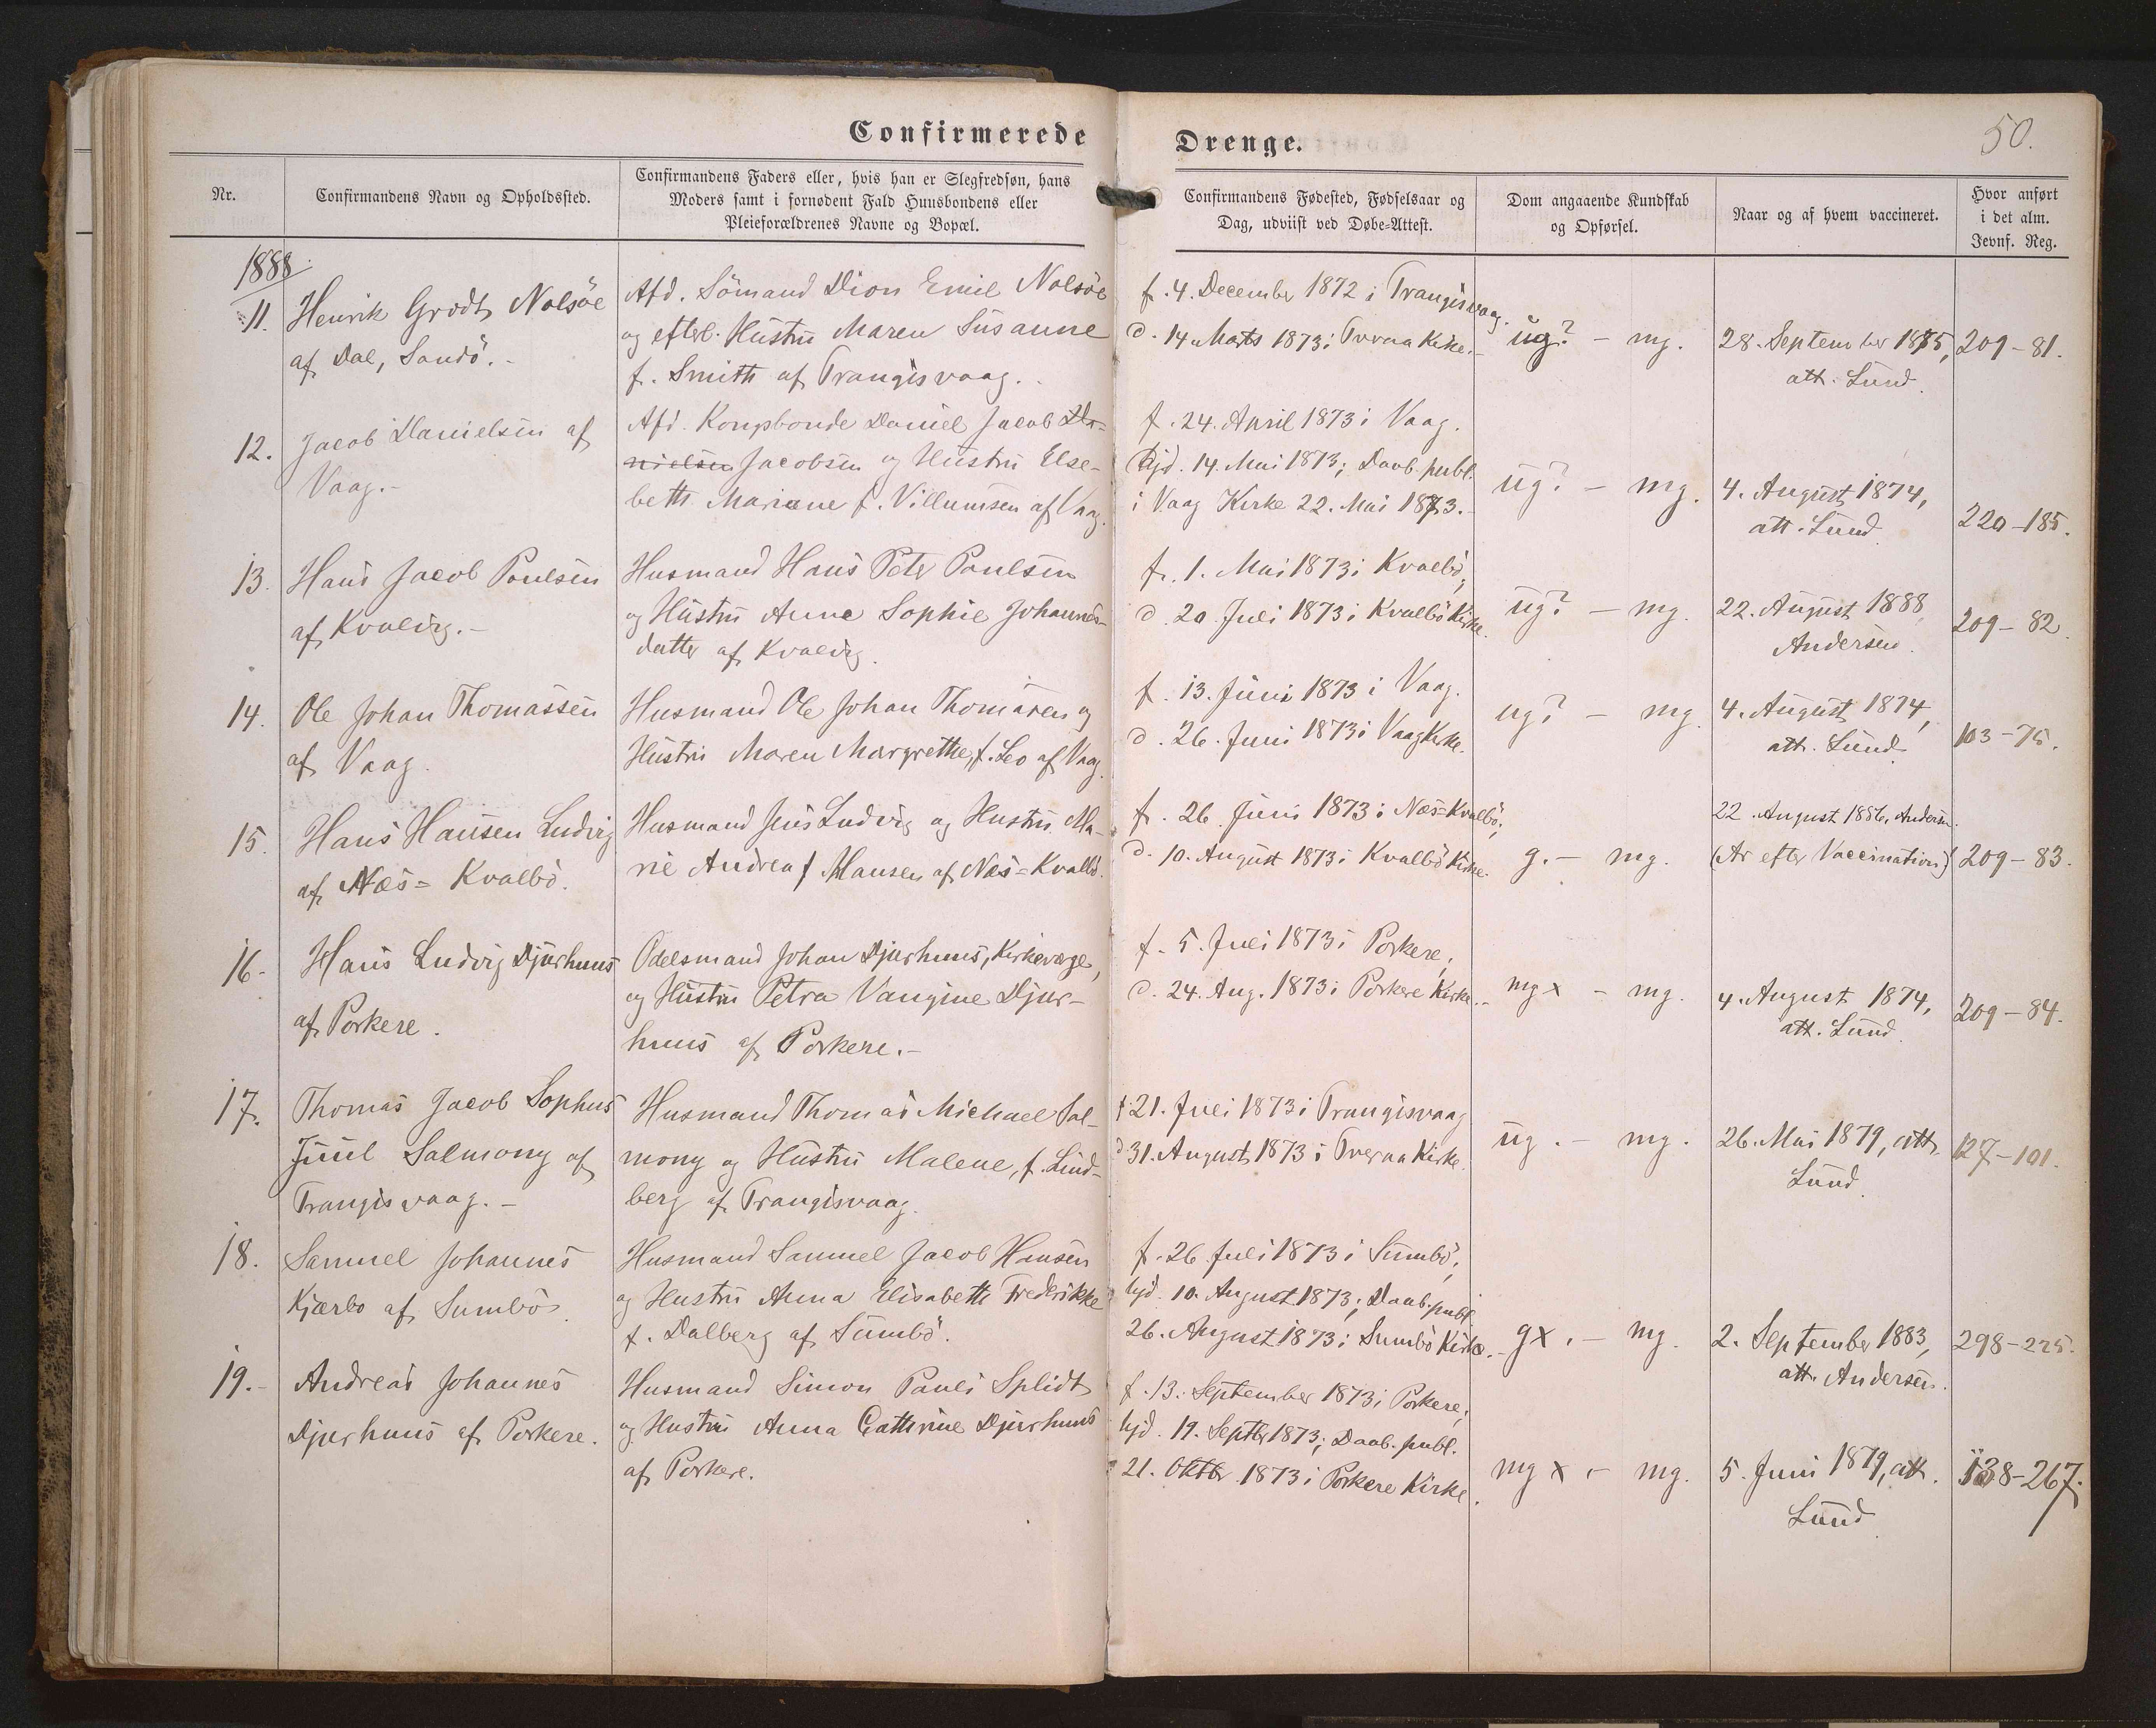 Confirmerede
Drenge.
50.
Nr.
Confirmandens Navn og Opholdssted.
Confirmandens Faders eller, hvis han er Slegfredsøn, hans
Moders samt i fornødent Fald Huusbondens eller
Pleieforældrenes Navne og Bopæl.
Confirmandens Fødested, Fødselsaar og
Dag, udviist ved Døbe-Attest.
Dom angaaende Kundskab
og Opførsel.
Naar og af hvem vaccineret.
Hvor anført
i det alm.
Jevnf. Reg.
1888
11.
Henrik Grodt Nolsöe
af Dal, Sandö.-
Afd. Sömand Dion Emil Nolsöe
og efterl. Hustru Maren Susanne
f. Smith af Trangisvaag.
f. 4. December 1872 i Trangisvaag.
d. 14 Marts 1873 i Tveraa Kirke.-
ug? - mg.
28. September 1875,
att. Lund.
209-81.
12.
Jacob Danielsen af
Vaag.-
Afd. Kongsbonde Daniel Jacob Da-
nielsen Jacobsen og Hustru Else-
beth Mariane f. Villumsen af Vaag.
f. 24. April 1873 i Vaag.
hjd. 14. Mai 1873; Daab. publ.
i Vaag Kirke 22. Mai 1873.-
ug? - mg.
4. August 1874,
att. Lund.
220-185.
13.
Hans Jacob Poulsen
af Kvalvig.-
Husmand Hans Peter Poulsen
og Hustru Anna Sophie Johannes-
datter af Kvalvig.
f. 1. Mai 1873 i Kvalbö,
d. 20. Juli 1873 i Kvalbö Kirke.
ug? - mg.
22. August 1888
Andersen.
209-82.
14.
Ole Johan Thomassen
af Vaag.
Husmand Ole Johan Thomasen og
Hustru Maren Margrethe, f. Leo af Vaag.
f. 13. Juni 1873 i Vaag.
d. 26. Juni 1873 i Vaag Kirke.
ug? - mg.
4. August 1874,
att. Lund.
103-75.
15.
Hans Hansen Ludvig
af Næs-Kvalbö.
Husmand Jens Ludvig og Hustru Ma-
rie Andrea f. Hansen af Næs-Kvalbö.
f. 26. Juni 1873 i Næs-Kvalbö;
d. 10. August 1873 i Kvalbö Kirke.
g. - mg.
22. August 1886, Andersen.
(Ar efter Vaccination)
209-83.
16.
Hans Ludvig Djurhuus
af Porkere.
Odelsmand Johan Djurhuus, Kirkeværge,
og Hustru Petra Vangine Djur-
huus af Porkere.-
f. 5. Juli 1873 i Porkere,
d. 24. Aug. 1873 i Porkere Kirke.-
mgx - mg.
4. August 1874,
att. Lund.
209-84.
17.
Thomas Jacob Sophus
Juul Salmony af
Trangisvaag.-
Husmand Thomas Michael Sal-
mony og Hustru Malene, f. Lind-
berg af Trangisvaag.
f. 21. Juli 1873 i Trangisvaag
d 31. August 1873 i Tveraa Kirke.
ug. - mg.
26. Mai 1879, att.
Lund.
127-101.
18.
Samuel Johannes
Kjærbo af Sumbö.
Husmand Samuel Jacob Hansen
og Hustru Anna Elisabeth Frederikke
f. Dalberg af Sumbö.
f. 26. Juli 1873 i Sumbö,
hjd. 10. August 1873; Daab. publ.
26. August 1873 i Sumbö Kirke.-
gx. - mg.
2. September 1883,
att. Andersen.
298-225.
19.-
Andreas Johannes
Djurhuus af Porkere.
Husmand Simon Pauli Splidt
og Hustru Anna Cathrine Djurhuus
af Porkere.
f. 13. September 1873 i Porkere,
hjd. 19. Septbr 1873; Daab. publ.
21. Oktbr 1873 i Porkere Kirke.
mgx. - mg.
5. Juni 1879, att.
Lund.
138-267.